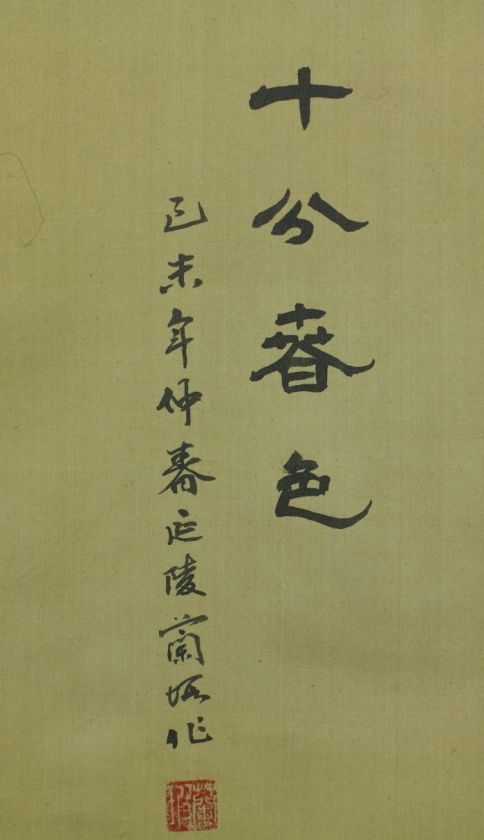 十分春色
己未年仲春延陵蘭坡作